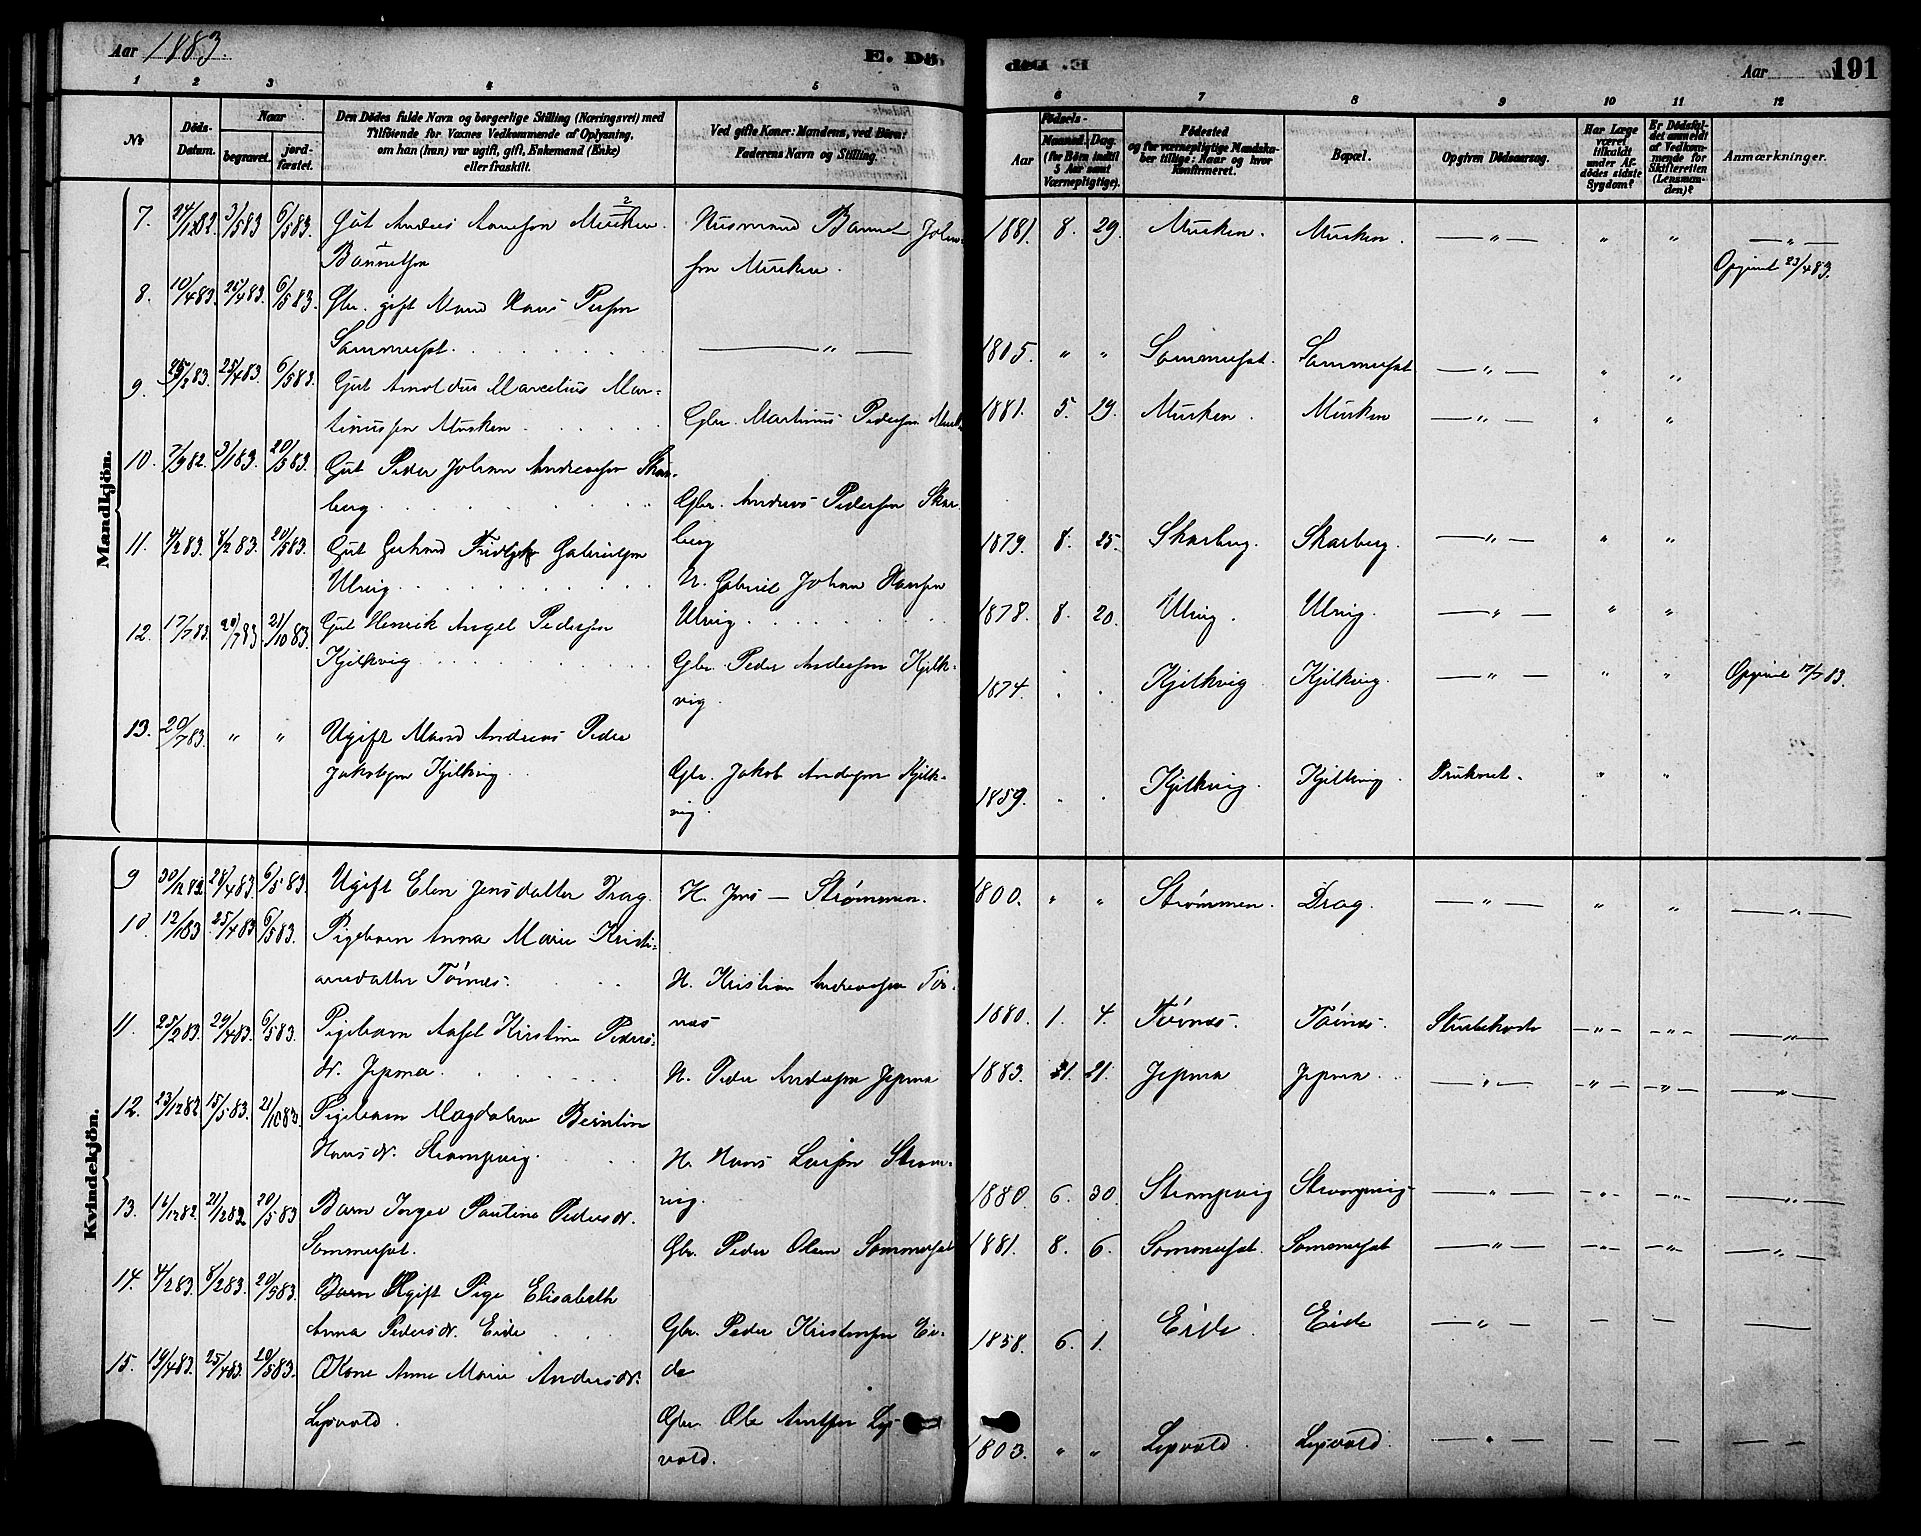 Aar 1883.
E. Dö
Aar
191
1 2 3 4 5 6 7 8 9 10 11 12
№
Döds-
Datum.
Naar
begravet.
jord-
fæstet.
Den Dödes fulde Navn og borgerlige Stilling (Næringsvei) med
Tilföiende for Voxnes Vedkommende af Oplysning,
om han (hun) var ugift, gift, Enkemand (Enke)
eller fraskilt.
Ved gifte Koner: Mandens, ved Börn:
Faderens Navn og Stilling.
Aar
Födsels-
Maaned. Dag.
(for Börn indtil
5 Aar samt
Værnepligtige).
Födested
og for værnepligtige Mandska-
ber tillige: Naar og hvor
konfirmeret.
Bopæl.
Opgiven Dödsaarsag.
Har Læge
været
tilkaldt
under Af-
dödes sidste
Sygdom?
Er Dödsfal-
det anmeldt
af Vedkom-
mende for
Skifteretten
(Lensman-
den)?
Anmærkninger.
Mandkjön.
7. 24/12 82. 3/5 83 6/5 83. Gut Anders Musken. Husmand 1881. 8. 29. Musken. Musken. — " — " " — " —
Musken.
8. 10/4 83. 25/4 83. 6/5 83. Gbr. gift Mand Hans Persen 23/4 83.
Sommerset. — " — 1805. " " Sommerset. Sommerset — " — " "
9. 83. 25/4 83. 6/5 83. Gut Arnoldus Marcelius Mar-
tinussen Musken Gbr. Martinus Pedersen 1881. 5. 29. Musken. Musken — " — " "
10. 7/9 82. 3/1 83. 20/5 83. Gut Peder Johan Andreassen Skar-
berg. Gbr. Andreas Pedersen Skar-
berg 1879. 8. 25. Skarberg. Skarberg. — " — " "
11. 4/2 83. 8/2 83. 20/5 83. Gut Gabrielsen
Ulvig. H. Gabriel Johan Hansen
Ulvig. 1878. 8. 20. Ulvig. Ulvig. — " — " "
12. 17/7 83. 20/7 83 21/10 83. Gut Henrik Angel Pedersen
Kjelkvig Gbr. Peder Andersen Kjelk-
vig. 1874. Kjelkvig Kjelkvig. — " — " " 17/7 83.
13. 20/7 83. " " Ugift Mand Andreas Peder
Jakobsen Kjelkvig Gbr. Jakob Andersen Kjelk-
vig. 1859. Kjelkvig. Kjelkvig. Druknet. " "
Kvindekjön.
9 30/12 82. 28/4 83. 6/5 83. Ugift Elen Jensdatter Drag. H. Jens — Strømmen. 1800. " " Strømmen. Drag. — " — " " — " —
10. 12/1 83 25/4 83 6/5 83. Pigebarn Anna Marie Kristi-
ansdatter Tørnes. H. Kristian Andreassen Tør-
nes 1880. 1. 4. Tørnes. Tørnes. Strubehoste — " — — " — — " —
11. 25/2 83. 29/4 83. 6/5 83. Pigebarn Aasel Kirstine Peders-
dr. Jepma. H. Peder Andersen Jepma 1883. 21. Jepma Jepma — " — — " — — " — — " —
12. 23/12 82 15/5 83. 21/10 83. Pigebarn Magdalena
Hansdr. Strompvig. H. Hans Larsen Strom-
vig. 1880. 6. 30. Strompvig Strompvig — " — — " — — " — — " —
13. 16/12 82. 21/12 82 20/5 83 Barn Paulina Pedersdr.
Sommerset. Gbr. Peder Olsen Sommerset 1881. 8. 6. Sommerset. Sommerset — " — — " — — " — — " —
14. 4/2 83. 8/2 83. 20/5 83. Barn Ugift Pige Elisabeth
Anna Pedersdr. Eide Gbr. Peder Kristensen Ei-
de 1858. 6. 1. Eide. Eide — " — — — —
15. 19/4 83. 25/4 83. 20/5 83. Kone Anne Marie Andersdr.
Lysvold. Gbr. Ole Lys-
vold. 1803. " " Lysvold. Lysvold. — " — — — —